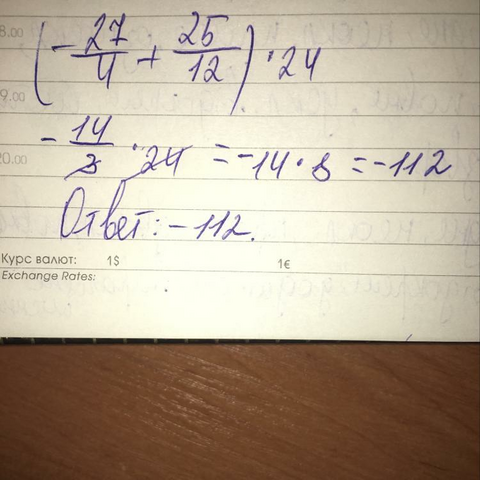 8.00
(-27/4 + 25/12) · 24
9.00
-14/3 · 24 = -14 · 8 = -112
20.00
Ответ: -112.
Курс валют: 1$ 1€
Exchange Rates: